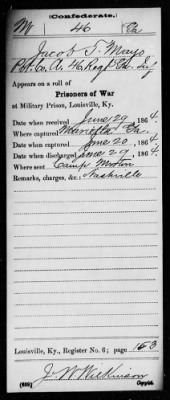 (Confederate.)
M 46 Ga
Jacob T. Mays
Pvt. Co. A, 46 Regt. Ga. Inf
Appears on a roll of
Prisoners of War
at Military Prison, Louisville, Ky.
Date when received June 29, 1864
Where captured Marietta Ga.
Date when captured June 20, 1864
Date when discharged June 29, 1864.
Where sent Camp Morton
Remarks, charges, &c.: Nashville
Louisville, Ky., Register No. 6; page 163
J. W. Wilkinson
Copyist.